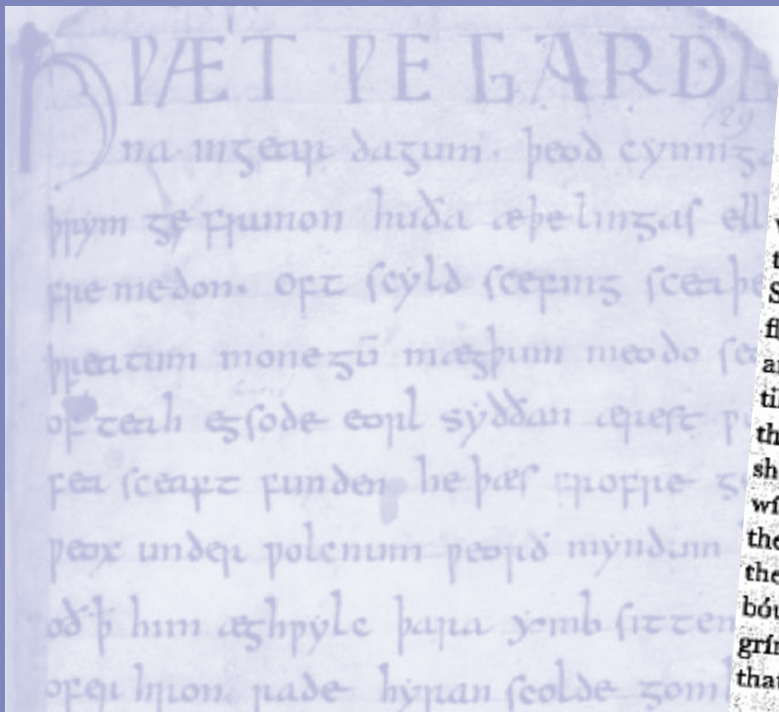 HǷÆT ǷE GARDE
na ingear dagum. þeod cyninga
þrym ge frunon huða æþelingas ell
fre medon. oft scyld scefing sceaþe
þreatum monegū mægþum meodo se
of teah egsode eorl syððan ærest ƿ
fea sceaft funden he þæs frofre ge
ƿeox under ƿolcnum ƿeorð myndum
oð ꝥ him æghƿylc þara ymb sitten
ofer hron rade hyran scolde gom
th
sh
wí
the
the
bóu
grí
that